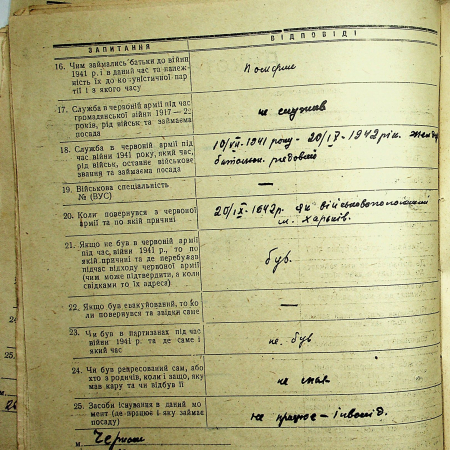 ЗАПИТАННЯ
ВІДПОВІДІ
16. Чим займались батьки до війни
1941 р. і в даний час та належ-
ність їх до комуністичної пар-
тії і з якого часу
Померли
17. Служба в червоній армії під час
громадянської війни 1917—22
років, рід військ та займаема
посада
не служив
18. Служба в червоній армії під
час війни 1941 року, який час,
рід військ, останнє військове
звання та займаема посада
10/VII-1941 року - 20/IX-1942 рік.
батальон. рядовий
19. Військова спеціальність
№ (ВУС)
—
20. Коли повернувся з червоної
армії та по якій причині
20/IX-1942 р. як військовополонений
м. Харків.
21. Якщо не був в червоній армії
під час війни 1941 р., то по
якій причині та де перебував
підчас відходу червоної армії
(чим може підтвердити, а коли
свідками то їх адреса)
був.
22. Якщо був евакуйований, то ко
ли повернувся та звідки саме
—
23. Чи був в партизанах під час
війни 1941 р. та де саме і
який час
не був
24. Чи був репресований сам, або
хто з родичів, коли і защо, яку
мав кару та чи відбув її
не мав
25. Засоби існування в даний мо
мент (де працює і яку займає
посаду)
не працює – інвалід.
м.